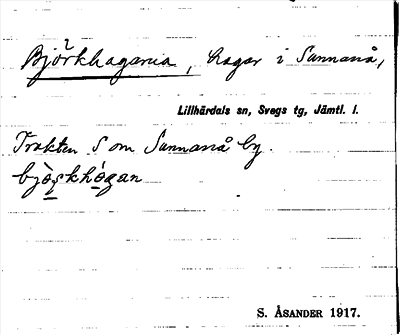 Björkhagarna, hagar i Sunnanå,
Lillhärdals sn, Svegs tg, Jämtl. l.
Trakten S om Sunnanå by.
bjòṣkhògan
S. ÅSANDER 1917.